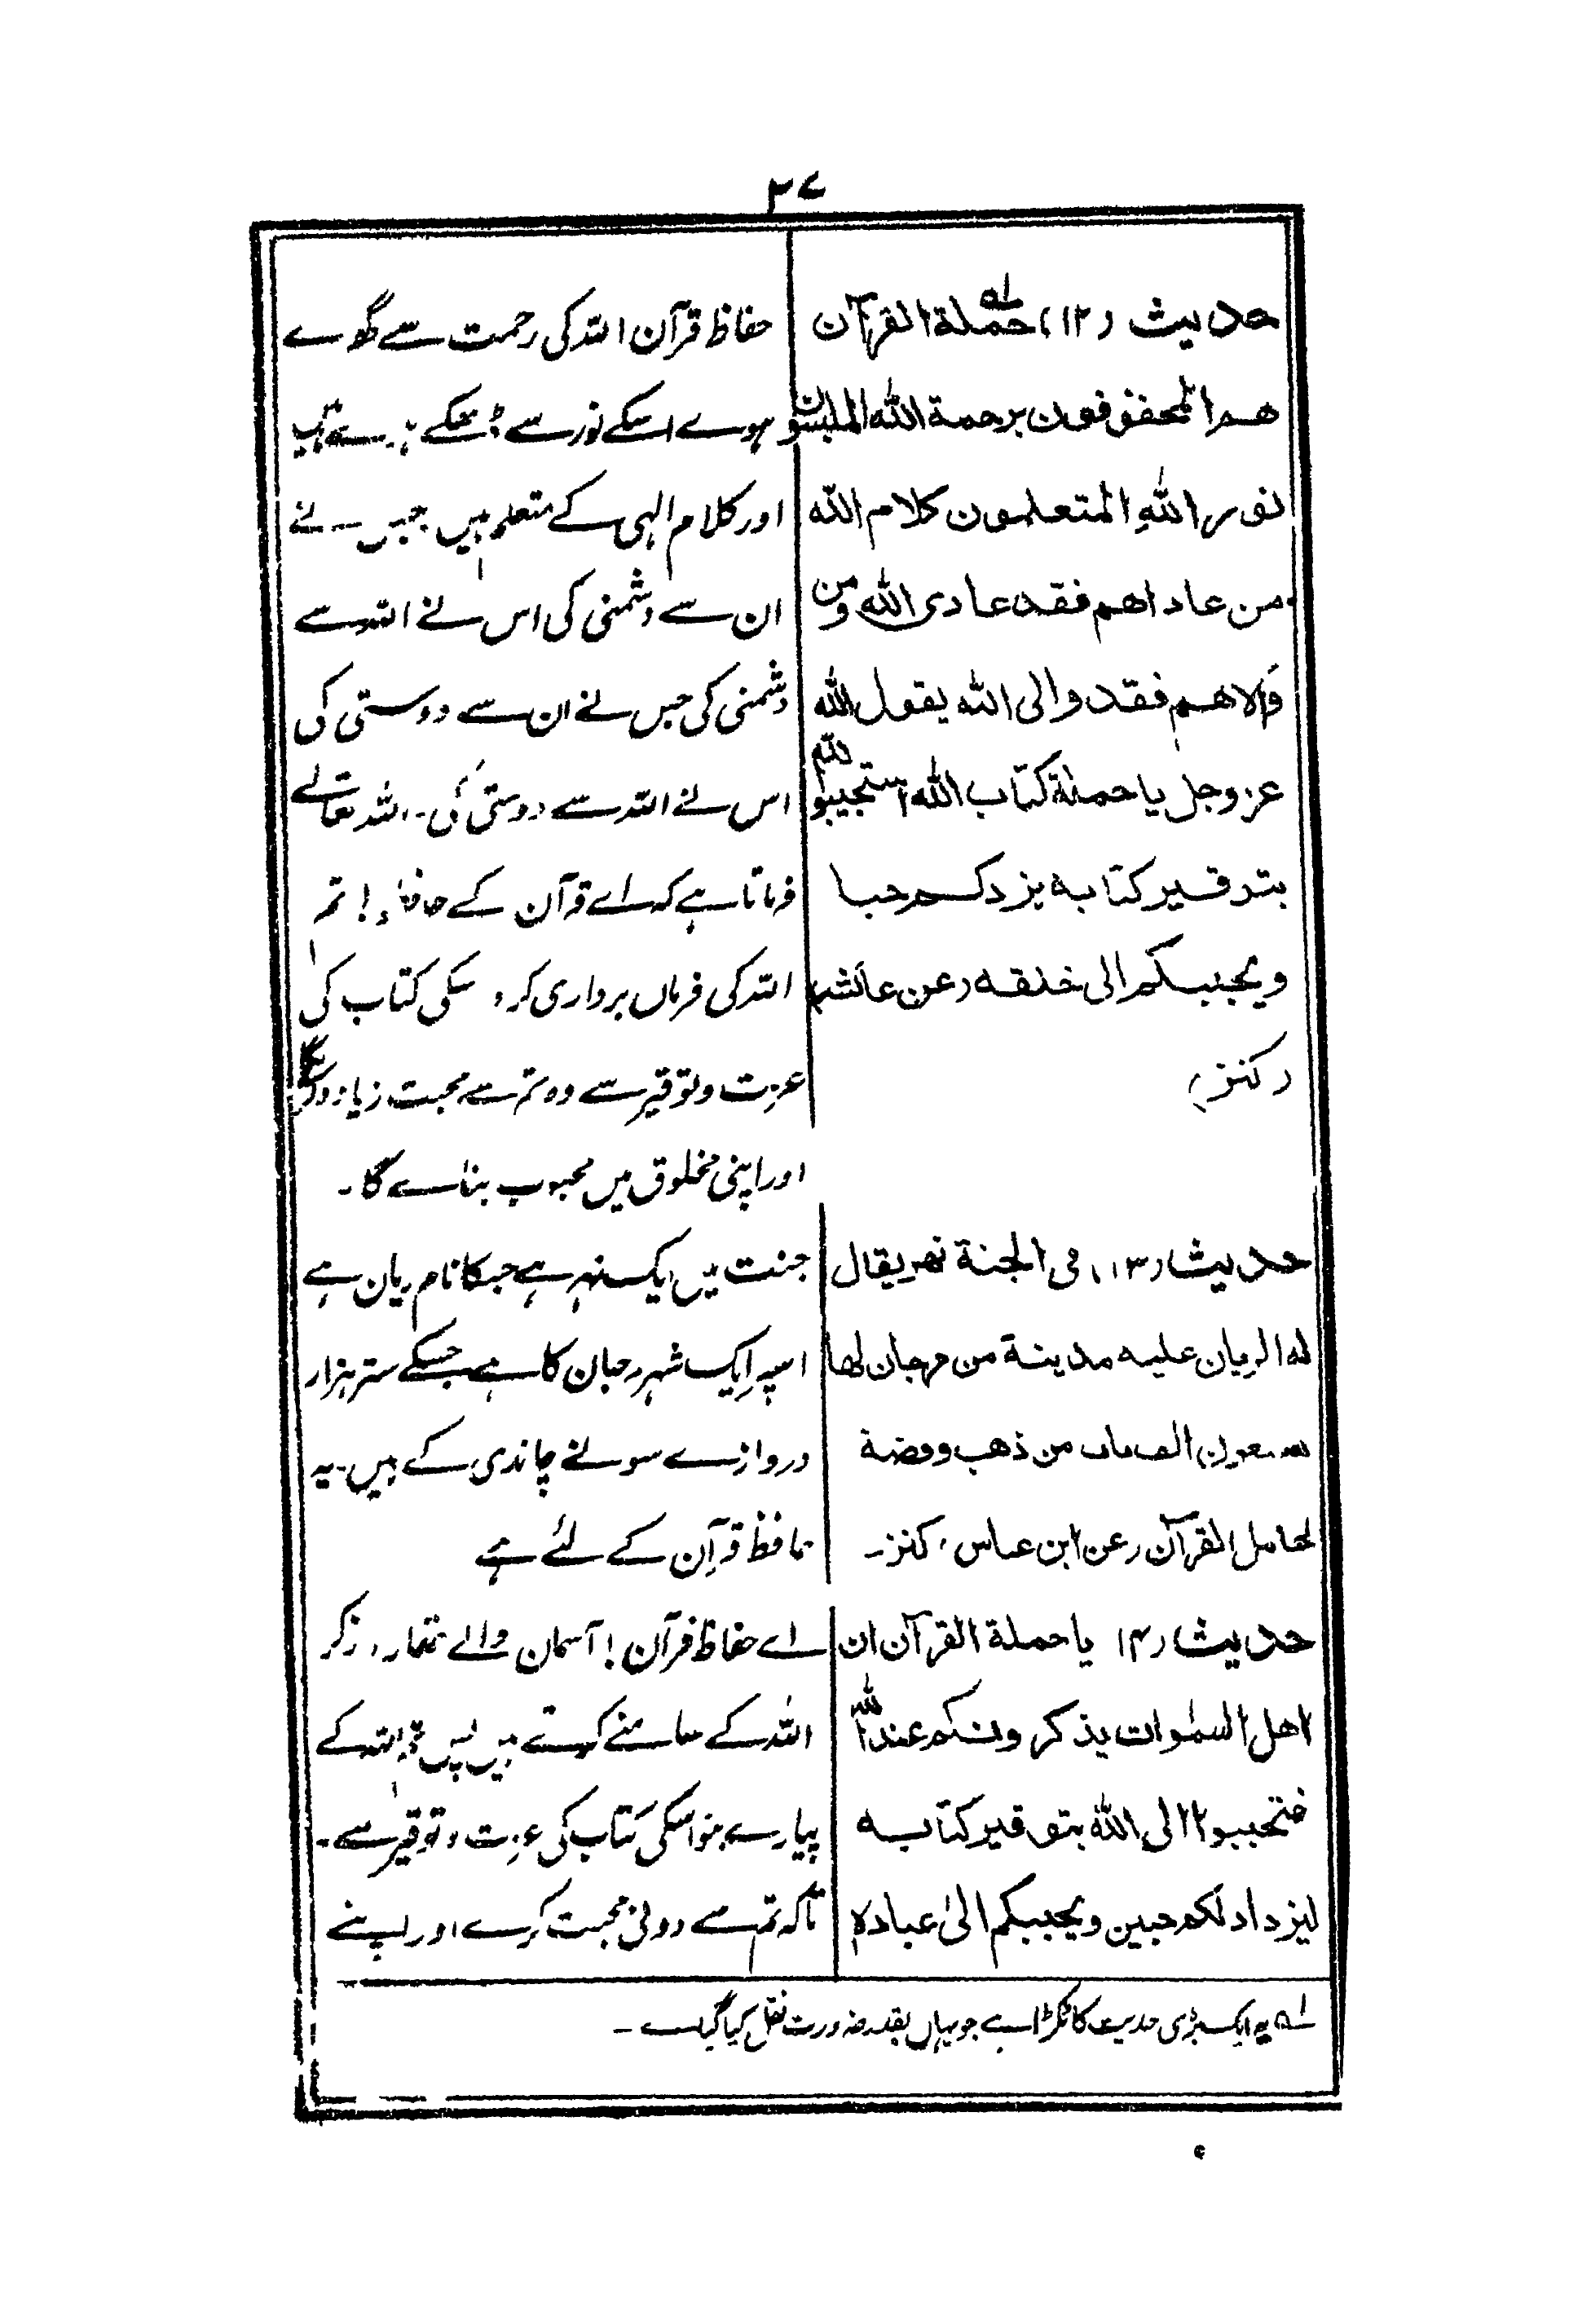 ۲۷
حدیث (۱۲) حملة القرآن
هم المحفوفون برحمة الله الملبسون
نور الله المتعلمون کلام الله
من عاداهم فقد عادی الله ومن
والاهم فقد والی الله یقول الله
عز وجل یا حملة کتاب الله استجیبوا لله
بتوقیر کتابه یزدکم حبا
ویحببکم الی خلقه (عن عائشه)
(کنز)
حفاظ قرآن اللہ کی رحمت سے گھرے
ہوے اسکے نور سے ڈھکے
اور کلام الہی کے متعلم ہیں جس نے
ان سے دشمنی کی اس نے اللہ سے
دشمنی کی جس نے ان سے دوستی کی
اس نے اللہ سے دوستی کی۔ اللہ تعالے
فرماتا ہے کہ اے قرآن کے حافظو! تم
اللہ کی فرماں برداری کرو اسکی کتاب کی
عزت و توقیر سے وہ تم سے محبت زیادہ کریگا
اور اپنی مخلوق میں محبوب بناے گا۔
حدیث (۱۳) فی الجنة نهر یقال
له الریان علیه مدینة من مرجان لها
سبعون الف باب من ذهب وفضة
لحامل القرآن (عن ابن عباس، کنز۔
جنت میں ایک نہر ہے جسکا نام ریان ہے
اسپہ ایک شہر مرجان کا ہے جسکے ستر ہزار
دروازے سونے چاندی کے ہیں۔ یہ
حافظ قرآن کے لئے ہے
حدیث (۱۴ یا حملة القرآن ان
اهل السمٰوات یذکرونکم عند الله
فتحببوا الی الله بتوقیر کتابه
لیزداد لکم حبین ویحببکم الیٰ عباده
اے حفاظ قرآن! آسمان والے تمھارا ذکر
اللہ کے سامنے کرتے ہیں پس تم اللہ کے
پیارے بنو اسکی کتاب کی عزت و توقیر سے۔
تاکہ تم سے دونی محبت کرے اور اپنے
لہ یہ ایک بڑی حدیث کا ٹکڑا ہے جو یہاں بقدر ضرورت نقل کیا گیا ہے۔